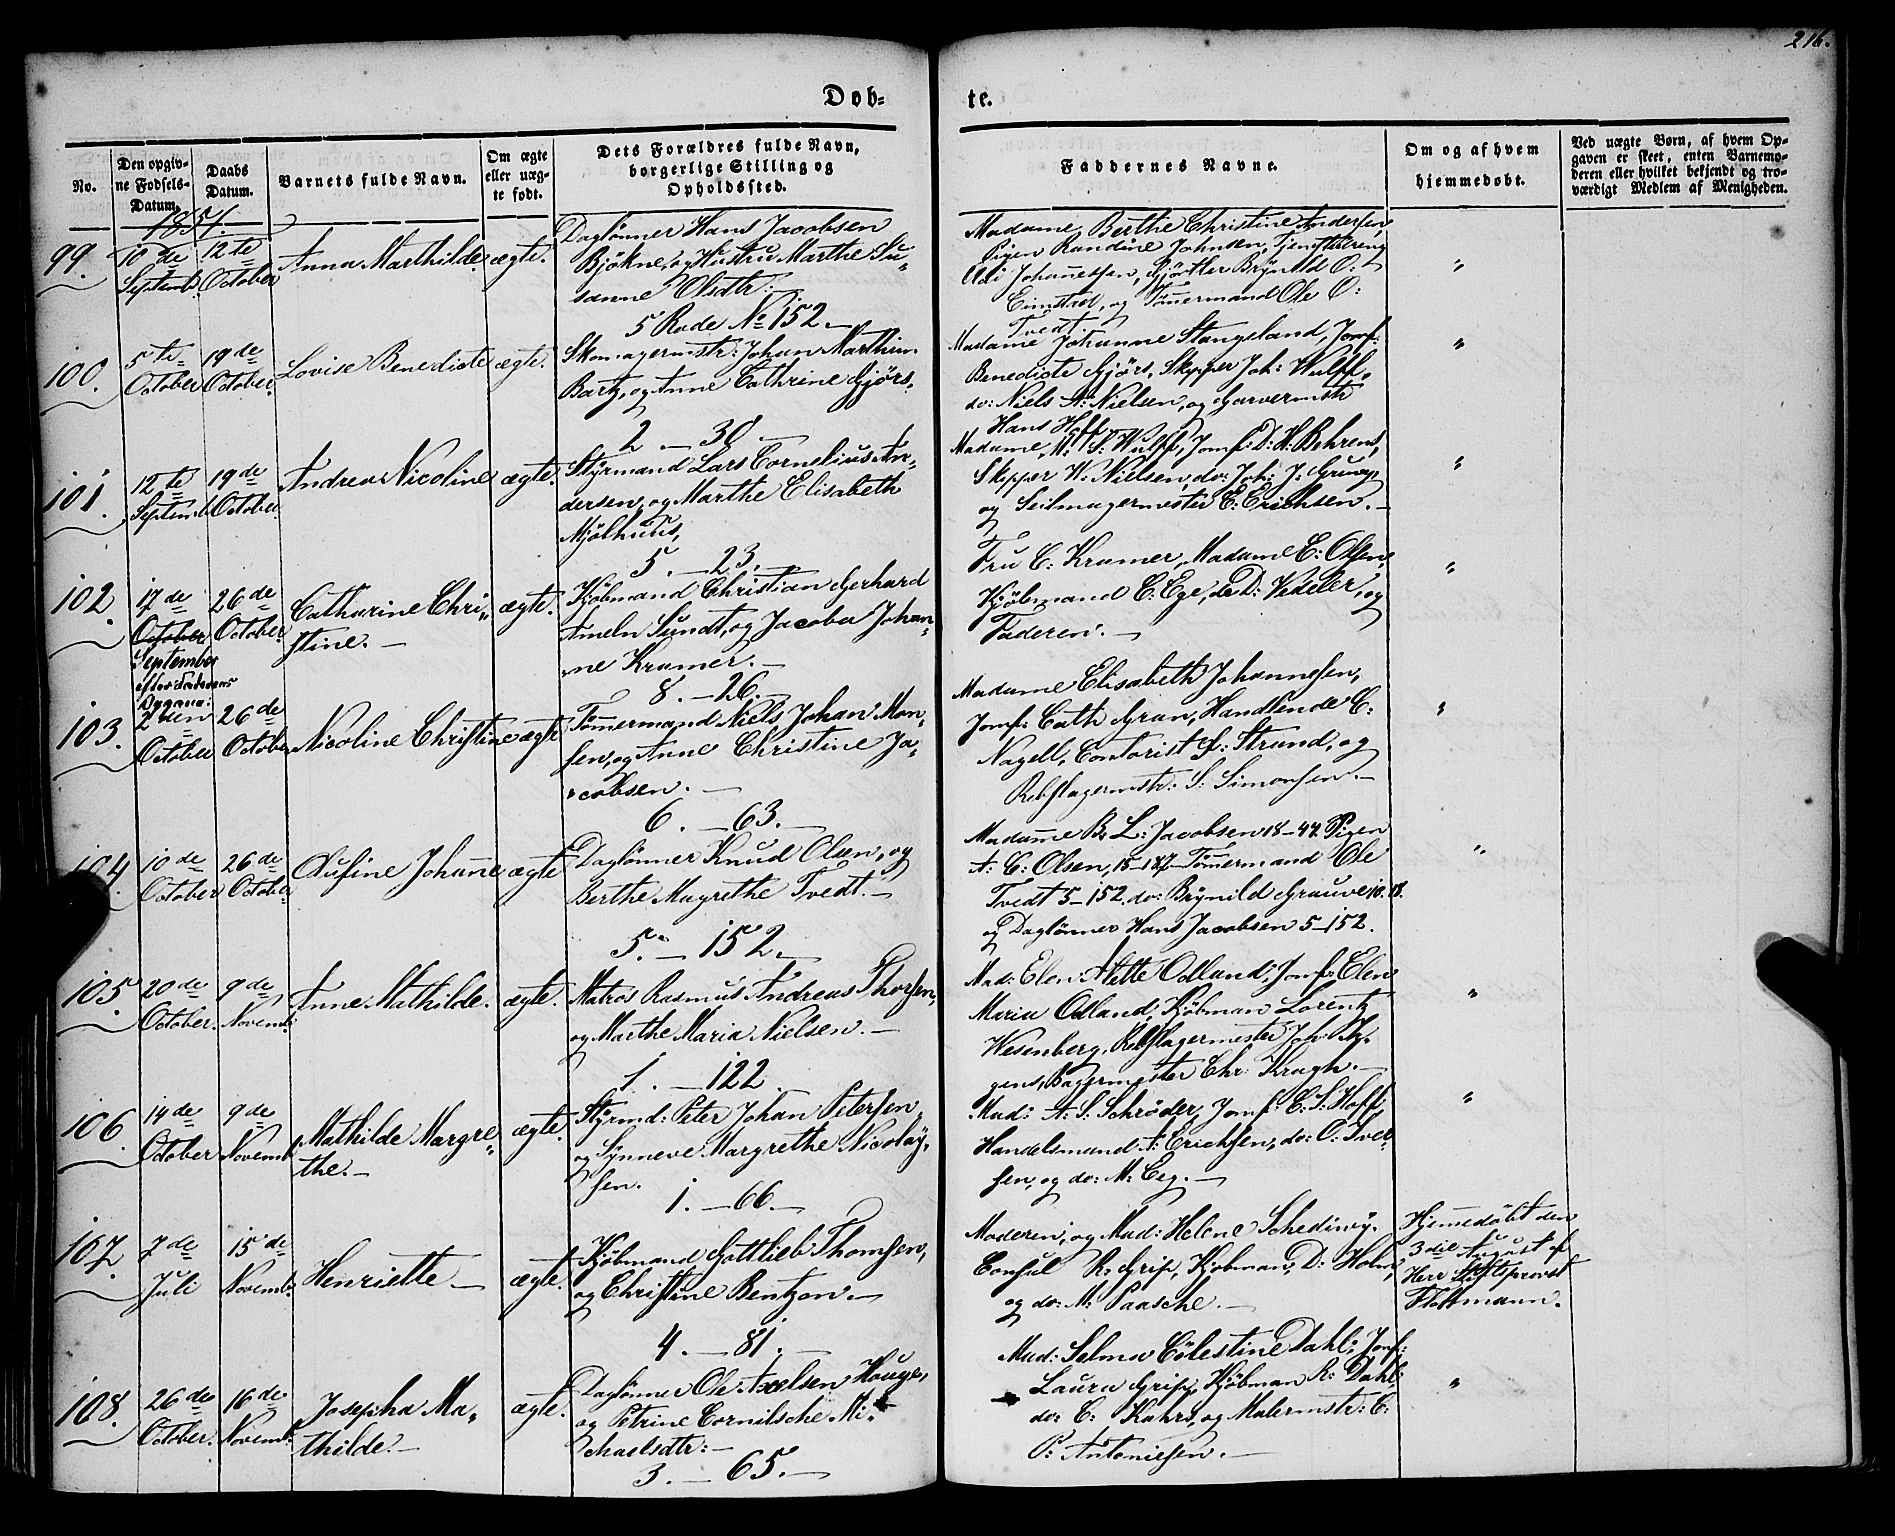 216.
Døb= te.
No.
Den opgiv-
ne Fødsels-
Datum.
Daabs
Datum.
Barnets fulde Navn.
Om ægte
eller uæg-
te født.
Dets Forældres fulde Navn,
borgerlige Stilling og
Opholdssted.
Faddernes Navne.
Om og af hvem
hjemmedøbt.
Ved uægte Børn, af hvem Op-
gaven er skeet, enten Barnemo-
deren eller hvilket bekjendt og tro-
værdigt Medlem af Menigheden.
1851.
99.
10de
Septemb:
12te
October
Anna Marthilde.
ægte.
Daglønner Hans Jacobsen
Bjøkne, og Hustru Marthe Su-
sanne Olsdtr:
5 Rode No 152.
Madame Berthe Christine Andersen,
Pigen Randine Johnsen, Tjenstdreng
Johannessen, Brynild O:
Eimstad, og Tømermand Ole O:
Tvedt.
"
100.
5te
October
19de
October.
Lovise Benedicte
ægte.
Skomagermstr: Johan Marthin
Bartz, og Anne Cathrine Gjørs.
2. — 30. —
Madame Johanne Stangeland, Jomf:
Benedicte Gjørs, Skipper Joh: Wulff,
do: Niels A: Nielsen, og Garvermstr
Hans Hoff
"
101.
12te
Septemb
19de
October.
Andrea Nicoline
ægte.
Styrmand Lars Cornelius An-
dersen, og Marthe Elisabeth
Mjølhuus,
5. — 23. —
Madame M: S: Wulff, Jomf: D: H: Behrens,
Skipper W: Nielsen, do: Joh: J: Gruuy
og Seilmagermester E: Erichsen. —
"
102.
17de
October
September
efter Faderens
Opgave.
26de
October.
Catharine Chri-
stine. —
ægte.
Kjøbmand Christian Gerhard
Ameln Sundt, og Jacoba Johan-
ne Kramer. —
8. — 26. —
Fru C: Kramer, Madame E: Olsen,
Kjøbmand C: Ege, do D: Vedeler, og
Faderen. —
"
103.
2den
October
26de
October
Nicoline Christine
ægte
Tømermand Niels Johan Mon-
sen, og Anne Christine Ja-
cobsen. —
6. — 63. —
Madame Elisabeth Johannesen,
Jomf: Cath Gran, Handlende C:
Nagell, Contorist P: Strand, og
Rebslagermstr: S: Simonsen. —
"
104.
10de
October
26de
October
Ausine Johanne
ægte
Daglønner Knud Olsen, og
Berthe Magrethe Tvedt. —
5. — 152. —
Madame B: L: Jacobsen 18-44. Pigen
A: C: Olsen, 15-187. Tømermand Ole
Tvedt 5-152. do: Brynild Grauve 10.18.
og Daglønner Hans Jacobsen 5-152.
"
105
20de
October.
9de
Novemb:
Anne Mathilde.
ægte.
Matros Rasmus Andreas Thorsen,
og Marthe Maria Nielsen. —
1. — 122.
Mad: Elen Alette Odland, Jomf: Elen
Maria Odland, Kjøbman Lorentz
Wesenberg, Rebslagermester Joh:
gens, Bagermester Chr: Kragh. —
"
106
14de
October
9de
Novemb:
Mathilde Margre-
the. —
ægte.
Styrmd: Peter Johan Petersen,
og Synneve Margrethe Nicolay-
sen.
1. — 66. —
Mad: A: S: Schrøder, Jomf: C: S: Hoff,
Handelsmand A: Erichsen, do: O: Iver-
sen, og do: M: Eeg. —
"
107.
7de
Juli
15de
Novemb.
Henriette —
ægte.
Kjøbmand Gottlieb Thomsen,
og Christine Bentzon. —
4. — 81.
Moderen, og Mad: Helene Scheding.
Consul R: Grip, Kjøbman, D: Holm,
og do: M: Paasche. —
Hjemedøbt den
3die August af
Herr Stiftsprovst
Flottmann.
108.
26de
October.
16de
Novemb.
Josepha Ma-
thilde. —
ægte.
Daglønner Ole Axelsen Houge,
og Petrine Cornilsche Mi-
chaelsdtr: —
3. — 65. —
Mad: Selma Cølestine Dahl, Jomf:
Laura Grip, Kjøbman R: Dahl,
do: C: Kahrs, og Malermstr: C:
P: Antoniesen. —
"